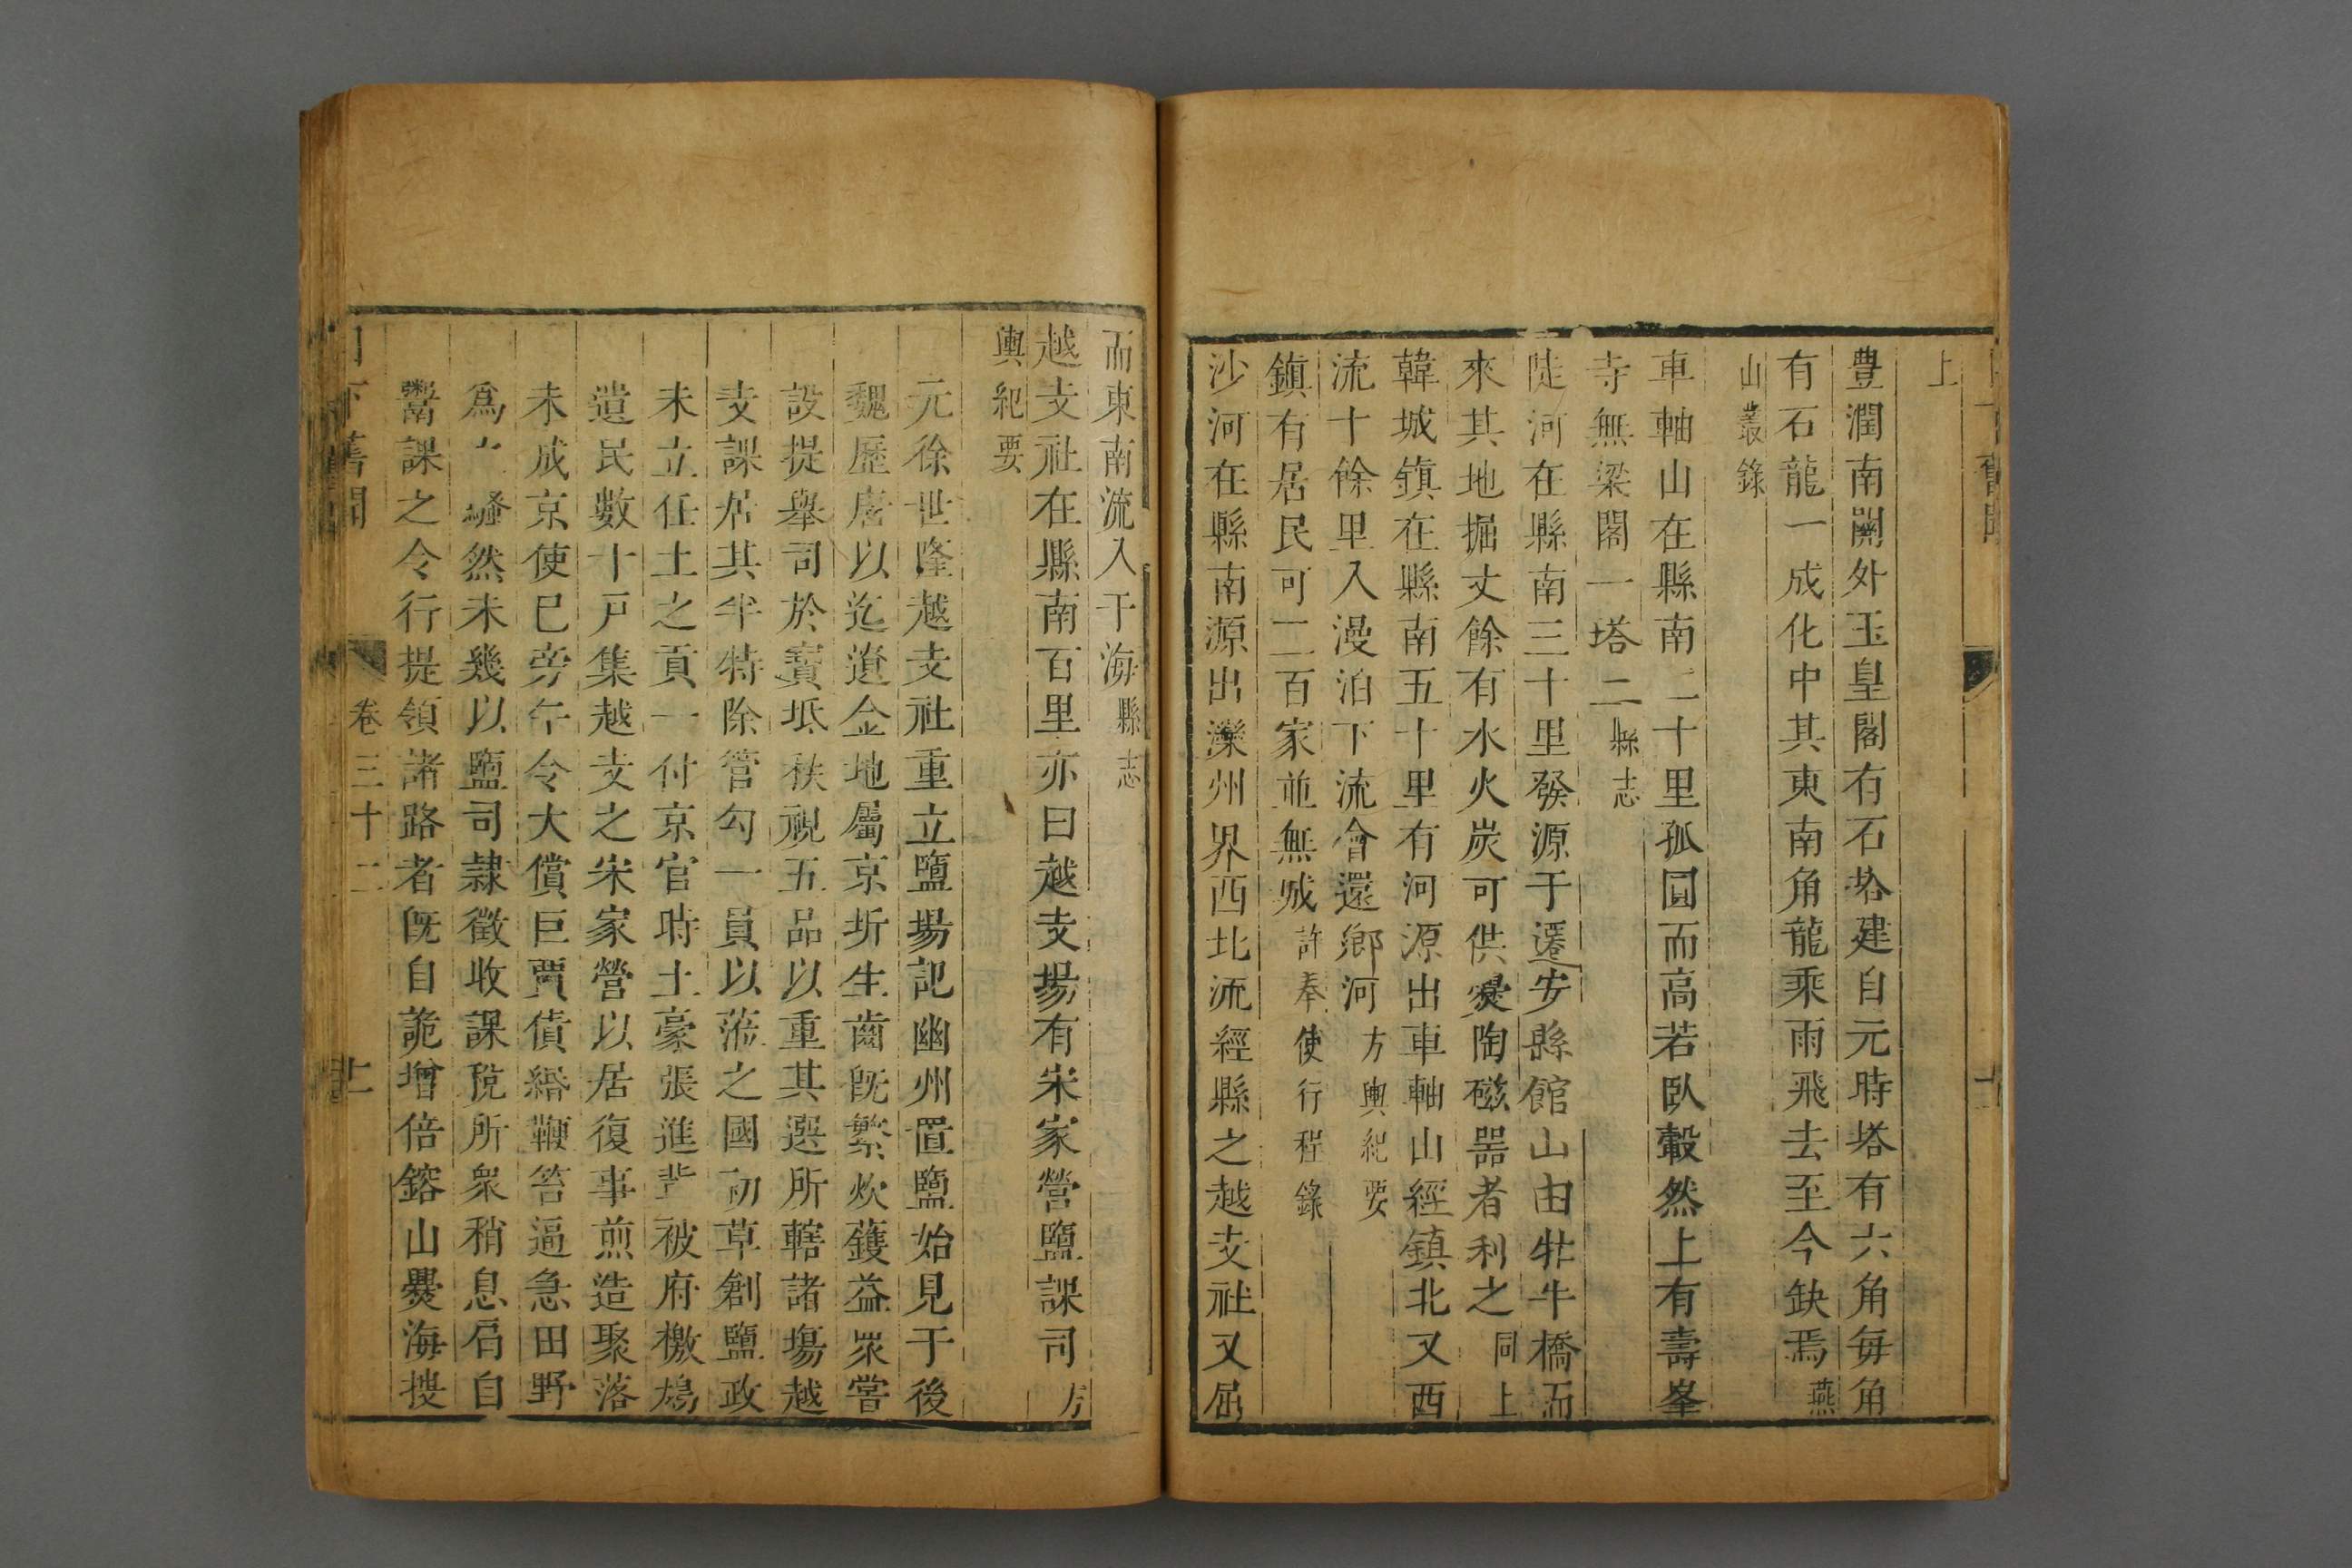 上
豊潤南關外玉皇閣有石塔建自元時塔有六角每角
有石龍一成化中其東南角龍乘雨飛去至今缺焉燕
山叢錄
車軸山在縣南二十里孤圓而高若臥轂然上有壽峯
寺無梁閣一塔二縣志
陡河在縣南三十里發源于遷安縣館山由牤牛橋而
來其地掘丈餘有水火炭可供爨陶磁噐者利之同上
韓城鎮在縣南五十里有河源出車軸山經鎮北又西
流十餘里入漫泊下流會還鄉河方輿紀要
鎮有居民可二百家並無城許奉使行程錄
沙河在縣南源出灤州界西北流經縣之越支社又屈
而東南流入于海縣志
越支社在縣南百里亦曰越支場有宋家營鹽課司方
輿紀要
元徐世隆越支社重立鹽場記幽州置鹽始見于後
魏歷唐以迄遼金地屬京圻生齒旣繁炊鑊益衆嘗
設提舉司於寶坻秩視五品以重其選所轄諸塲越
支課居其半特除管勾一員以蒞之國初草創鹽政
未立任土之貢一付京官時土豪張進軰被府檄鳩
遺民數十戸集越支之宋家營以居復事煎造聚落
未成京使已旁午令大償巨賈債緡鞭笞逼急田野
爲 騷然未幾以鹽司隷徵收課稅所衆稍息肩自
鬻課之令行提領諸路者旣自詭增倍鎔山㸑海搜
日下舊聞 卷三十二 十一